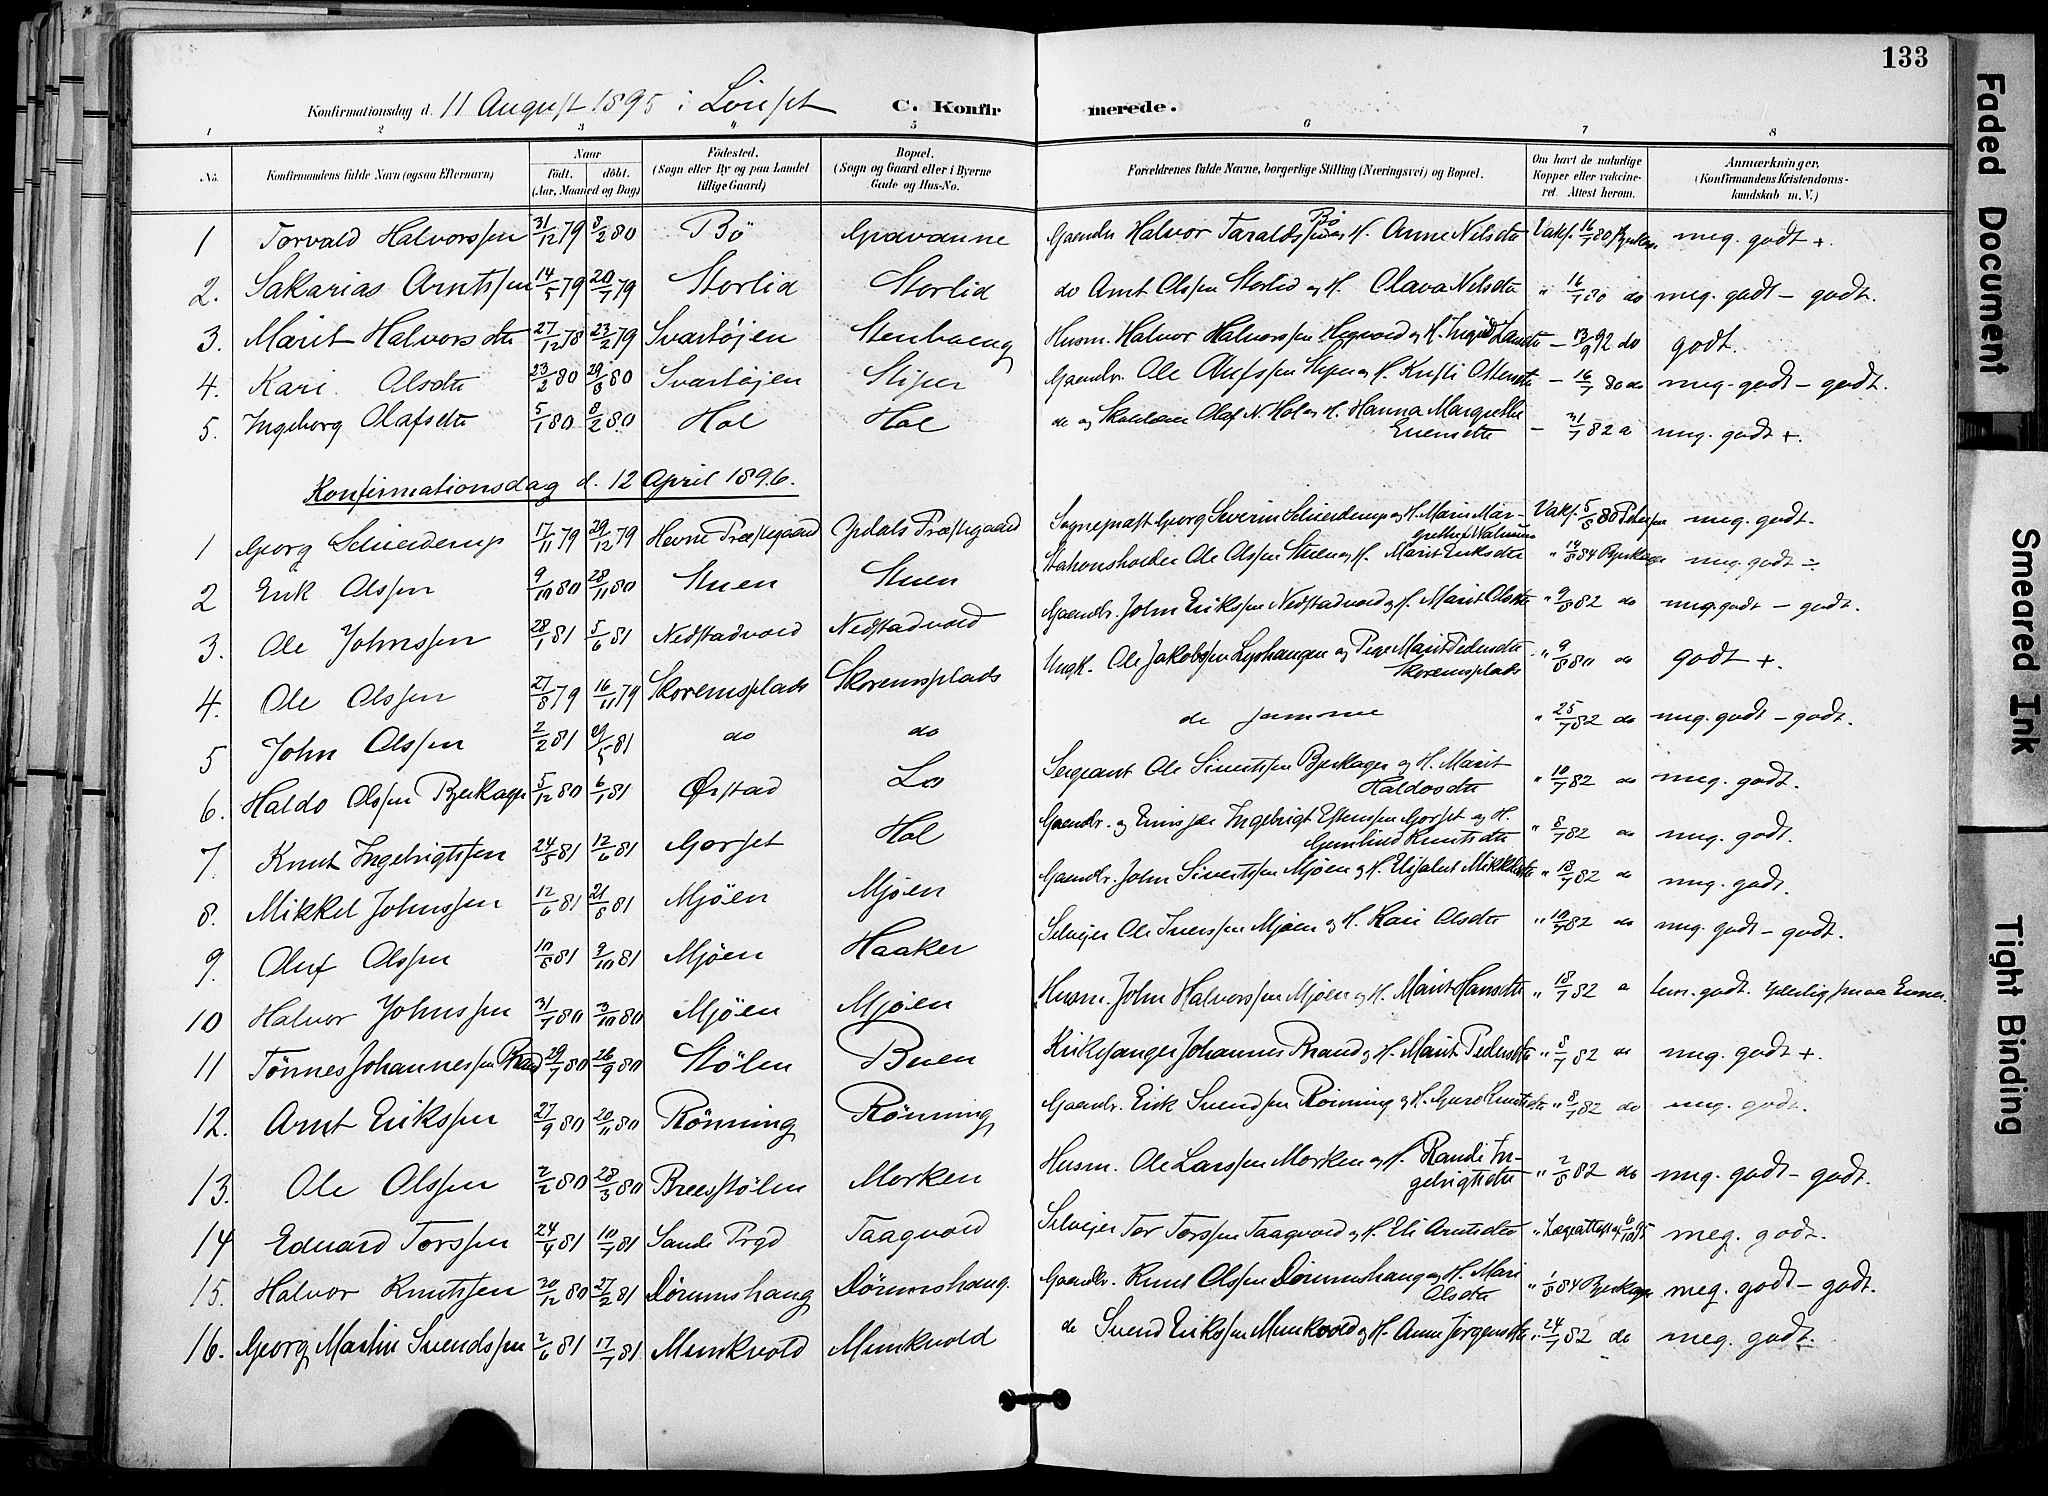 133
Konfirmationsdag d. 11 August 1895 i Lönset C. Konfirmerede.
1 2 3 4 5 6 7 8
No. Konfirmandens fulde Navn (ogsaa Efternavn) Naar födt. döbt. (Aar, Maaned og Dag) Födested. (Sogn eller By og paa Landet tillige Gaard) Bopæl. (Sogn og Gaard eller i Byerne Gade og Hus-No. Forældrenes fulde Navne, borgerlige Stilling (Næringsvei) og Bopæl. Om havt de naturlige Kopper eller vakcineret. Attest herom. Anmærkninger. (Konfirmandens Kristendomskundskab m. V.)
1 Torvald Halvorssen 31/12 79 8/2 80 Bö Gravaune Gaardbr. Halvor Taraldssen Bö og H. Anne Nilsdtr Vakc. 16/7 80 Bjerkager meg. godt +.
2. Sakarias Arntssen 14/5 79 20/7 79 Storlid Storlid do Arnt Olssen Storlid og H. Olava Nilsdtr " 16/7 80 do meg. godt – godt.
3. Marit Halvorsdtr 27/12 78 23/2 79 Svartöjen Stenhaug Husm. Halvor Halvorssen og H. Ingrid Larsdtr – 13/9 92 do godt.
4. Kari Olsdtr 23/2 80 29/3 80 Svartöjen Stiper Gaardbr. Ole Olufssen Stiper og H. Kristi Ottersdtr – 16/7 80 do meg. godt – godt.
5. Ingeborg Olafsdtr 5/1 80 8/2 80 Hol Hol do og Skolelærer Olaf N. Hol og H. Hanna Margrethe Evensdtr – 31/7 82 a meg. godt +.
Konfirmationsdag d. 12 April 1896.
1 Georg Schieederup 17/11 79 29/12 79 Hevne Præstegaard Opdals Præstegaard Sogneprest Georg Severin Schieederup og H. Maria Margrethe f. Walnum Vakc. 5/8 80 Petersen meg. godt.
2 Erik Olssen 9/10 80 28/11 80 Stuen Stuen Stationsholder Ole Olssen Stuen og H. Marit Eriksdtr " 14/8 84 Bjerkager meg. godt ÷
3. Ole Johnssen 28/1 81 5/6 81 Nedstadvold Nedstadvold Gaardbr. John Erikssen Nedstadvold og H. Marit Olsdtr " 9/8 82 do meg. godt – godt.
4. Ole Olssen 27/8 79 16/11 79 Skoremsplads Skoremsplads Ungk. Ole Jakobssen Lyshaugen og Pige Marit Pedersdtr Skoremsplads " 9/8 80 do godt +.
5 John Olssen 2/2 81 29/5 81 do do de samme " 25/7 82 do meg. godt – godt.
6. Haldo Olssen Bjerkager 5/12 80 6/1 81 Ørstad Lo Sergeant Ole Sivertssen Bjerkager og H. Marit Haldosdtr " 10/7 82 do meg. godt.
7. Knut Ingebrigtssen 24/5 81 12/6 81 Gorset Hol Gaardbr. og Emissær Ingebrigt Estenssen Gorset og H. Gunhild Knutsdtr " 8/7 82 do meg. godt.
8. Mikkel Johnssen 12/6 81 21/8 81 Mjöen Mjöen Gaardbr. John Sivertssen Mjöen og H. Elisabet Mikkelsdtr " 18/7 82 do meg. godt.
9. Oluf Olssen 10/8 81 9/10 81 Mjöen Haaker Selvejer Ole Iverssen Mjöen og H. Kari Olsdtr " 10/7 82 do meg. godt – godt.
10 Halvor Johnssen 31/7 80 3/10 80 Mjöen Mjöen Husm. John Halvorssen Mjöen og H. Marit Hansdtr " 18/7 82 a temr. godt. yderlig smaa Evner.
11 Tönnes Johannessen Brand 29/7 80 26/9 80 Stölen Buen Kirkesanger Johannes Brand og H. Marit Pedersdtr " 8/7 82 do meg. godt +.
12. Arnt Erikssen 27/9 80 20/11 80 Rönning Rönning Gaardbr. Erik Svendssen Rönning og H. Guro Knutsdtr " 8/7 82 do meg. godt.
13. Ole Olssen 2/2 80 28/3 80 Breesstölen Morken Husm. Ole Larssen Morken og H. Randi Ingebrigtsdtr " 2/8 82 do meg. godt – godt.
14 Edvard Torssen 24/4 81 10/7 81 Sande Prgd Taagvold Selvejer Tor Torssen Taagvold og H. Eli Arntsdtr " Lægeattest af 6/10 95 meg. godt.
15. Halvor Knutssen 20/12 80 27/2 81 Dörumshaug Dörumshaug. Gaardbr. Knut Olssen Dörumshaug og H. Mari Olsdtr " 1/8 84 Bjerkager meg. godt – godt.
16. Georg Martin Svendssen 2/6 81 17/7 81 Munkvold Munkvold do Svend Erikssen Munkvold og H. Anne Jörgensdtr " 24/7 82 do meg. godt.
Faded Document
Smeared Ink
Tight Binding